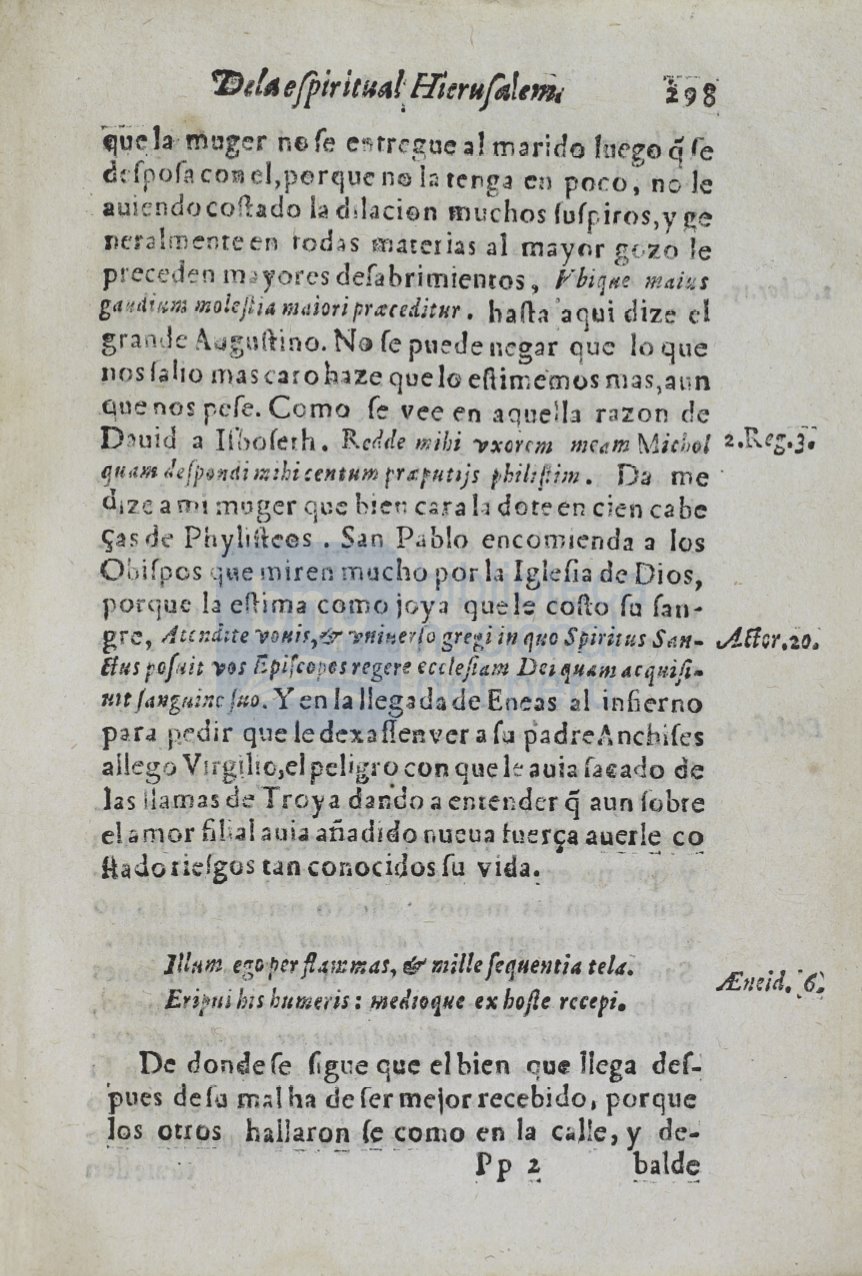 De la eſpiritual Hieruſalem. 298
que la muger no ſe entregue al marido luego q̃ ſe
deſpoſa con el, porque no la tenga en poco, no le
auiendo coſtado la dilacion muchos ſuſpiros, y ge
neralmente en todas materias al mayor gozo le
preceden mayores deſabrimientos, Vbique maius
gaudium moleſtia maiori præceditur. haſta aqui dize el
grande Auguſtino. No ſe puede negar que lo que
nos ſalio mas caro haze que lo eſtimemos mas, aun
que nos peſe. Como ſe vee en aquella razon de
Dauid a Iſboſeth. Redde mihi vxorem meam Michol
2.Reg.3.
quam deſpondi mihi centum præputijs philiſtim. Da me
dize a mi muger que bien cara la dote en cien cabe
ças de Phyliſteos. San Pablo encomienda a los
Obiſpos que miren mucho por la Igleſia de Dios,
porque la eſtima como joya que le coſto ſu ſan-
gre, Attendite vouis, & vniuerſo gregi in quo Spiritus San-
Actor.20.
ctus poſuit vos Epiſcopos regere eccleſiam Dei quam acquiſi-
uit ſanguine ſuo. Y en la llegada de Eneas al infierno
para pedir que le dexaſſen ver a ſu padre Anchiſes
allego Virgilio, el peligro con que le auia ſacado de
las llamas de Troya dando a entender q̃ aun ſobre
el amor filial auia añadido nueua fuerça auerle co
ſtado rieſgos tan conocidos ſu vida.
Illum ego per flammas, & mille ſequentia tela.
Æneid. 6.
Eripui his humeris: medioque ex hoſte recepi.
De donde ſe ſigue que el bien que llega deſ-
pues de ſu mal ha de ſer mejor recebido, porque
los otros hallaron ſe como en la calle, y de-
Pp 2 balde